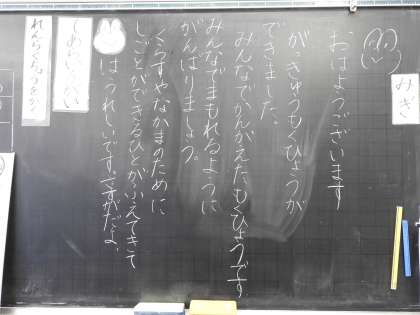 みぎ
おはようございます
がっきゅうもくひょうが
できました。
みんなでかんがえたもくひょうです
みんなでまもれるように
がんばりましょう。
くらすやなかまのために
しごとができるひとがふえてきて
はうれしいです。すがだよ。